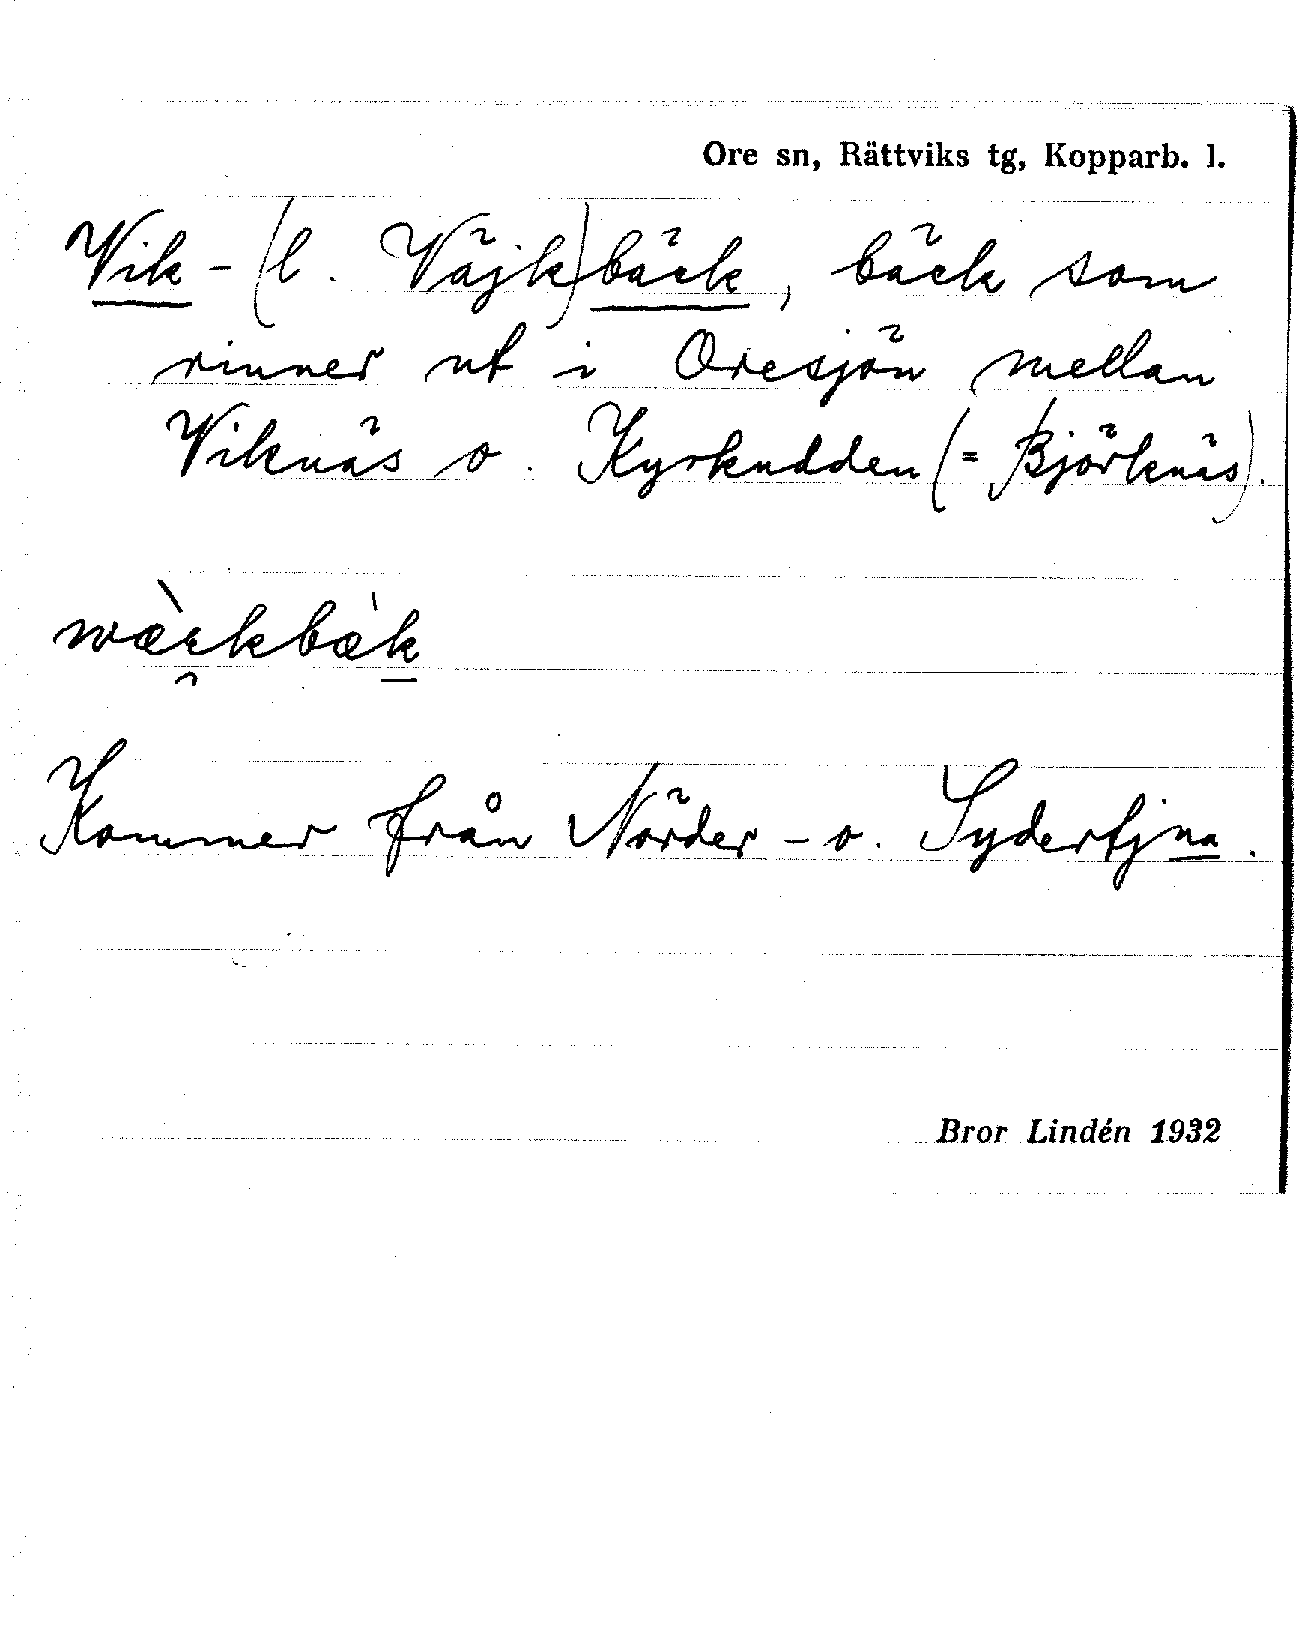 Ore sn, Rättviks tg, Kopparb. l.
Vik- (l. Väjk)bäck, bäck som
rinner ut i Oresjön mellan
Viknäs o. Kyrkudden (= Björknäs).
wæ̀e̯kbæ̀k̲
Kommer från Nörder- o. Sydertjna.
Bror Lindén 1932